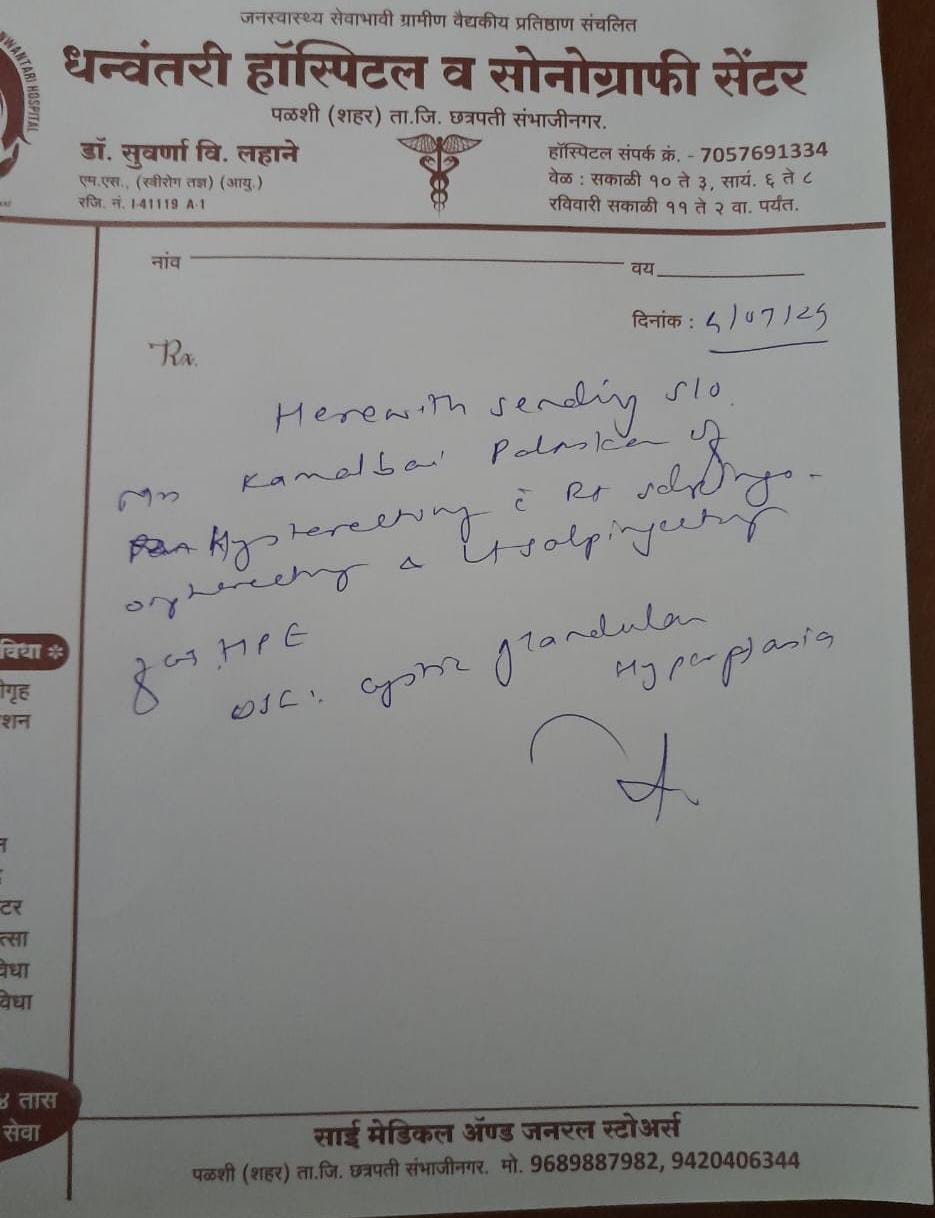 जनस्वास्थ्य सेवाभावी ग्रामीण वैद्यकीय प्रतिष्ठाण संचलित
WANTARI HOSPITAL
धन्वंतरी हॉस्पिटल व सोनोग्राफी सेंटर
पळशी (शहर) ता.जि. छत्रपती संभाजीनगर.
डॉ. सुवर्णा वि. लहाने
एम.एस., (स्त्रीरोग तज्ञ) (आयु.)
रजि. नं. I-41119 A-1
हॉस्पिटल संपर्क क्रं. - 7057691334
वेळ : सकाळी १० ते ३, सायं. ६ ते ८
रविवारी सकाळी ११ ते २ वा. पर्यंत.
नांव
वय
दिनांक : /07/25
Rx.
Herewith sending S/O
Kamalbai of
Hysterectomy c̄ Rt salpingo-
oophorectomy & Lt salpingectomy
for HPE
cystic glandular
Hyperplasia
विधा
गृह
शन
टर
त्सा
वेधा
विधा
४ तास
सेवा
साई मेडिकल ॲण्ड जनरल स्टोअर्स
पळशी (शहर) ता.जि. छत्रपती संभाजीनगर. मो. 9689887982, 9420406344